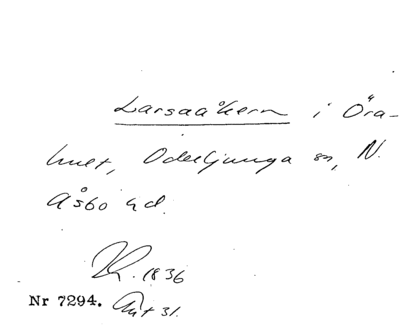 Larsaåkern i Öra-
hult, Oderljunga sn, N.
Åsbo hd.
K. 1836
Nr 7294. Akt 31.